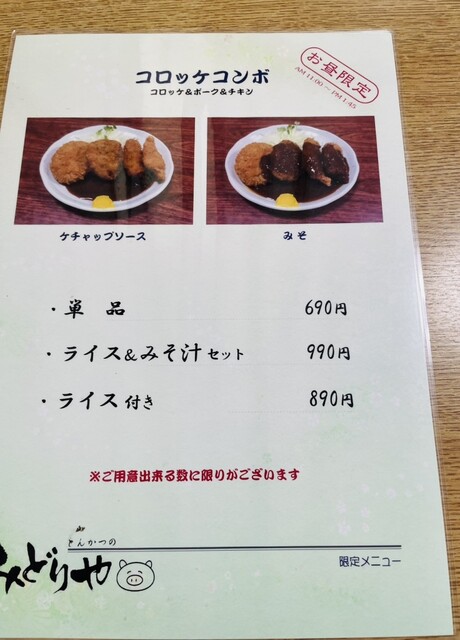 コロッケコンボ
コロッケ&ポーク&チキン
お昼限定
AM 11:00 ～ PM 1:45
ケチャップソース
みそ
・単 品 690円
・ライス&みそ汁セット 990円
・ライス付き 890円
※ご用意出来る数に限りがございます
とんかつの
みどりや
限定メニュー